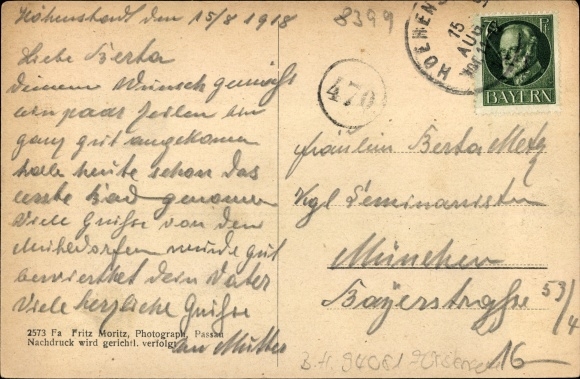 Höhenstadt den 15/8 1918
Liebe Berta
Deinem Wunsch gemäß
ein paar Zeilen bin
ganz gut angekommen
habe heute schon das
erste Bad genommen
Viele Grüße von den
wurde gut
bewirthet dein Vater
Viele herzliche Grüße
Mutter
2573 Fa Fritz Moritz, Photograph, Passau
Nachdruck wird gerichtl. verfolgt
8399
470
HOEHENS
15
AUG
BAYERN
Fräulein Berta Metz
Kgl Seminaristin
München
Bayerstrasse 53/4
16-